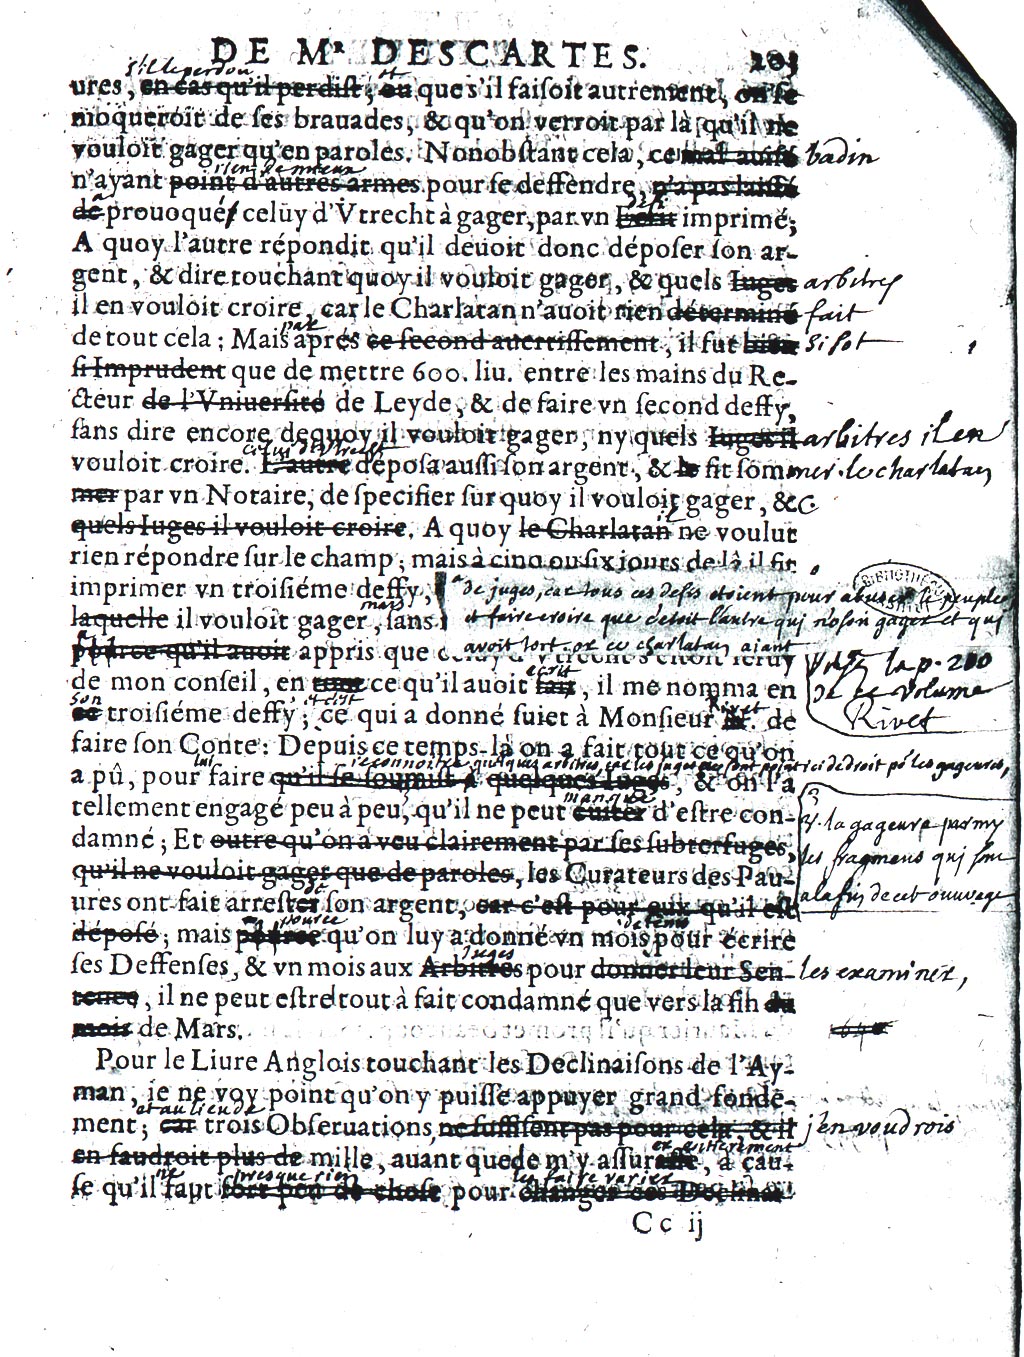 DE Mʳ DESCARTES. 203
s'il le perdoit et
ures, en cas qu'il perdiſt, ou que s'il faiſoit autrement, on ſe
moqueroit de ſes brauades, & qu'on verroit par là qu'il ne
vouloit gager qu'en paroles. Nonobſtant cela, ce mal auiſé badin
rien de mieux
n'ayant point d'autres armes pour ſe deffendre, n'a pas laiſſé
a defi
de prouoqué celuy d'Vtrecht à gager, par vn Ecrit imprimé;
A quoy l'autre répondit qu'il deuoit donc dépoſer ſon ar-
gent, & dire touchant quoy il vouloit gager, & quels Iuges arbitres
il en vouloit croire, car le Charlatan n'auoit rien déterminé fait
par
de tout cela; Mais aprés ce ſecond auertiſſement, il fut bien si sot
ſi Imprudent que de mettre 600. liu. entre les mains du Re-
cteur de l'Vniuerſité de Leyde, & de faire vn ſecond deffy,
ſans dire encore dequoy il vouloit gager, ny quels Iuges il arbitres il en
celui d'Utrecht
vouloit croire. L'autre dépoſa auſſi ſon argent, & le fit ſommer le charlatan
mer par vn Notaire, de ſpecifier ſur quoy il vouloit gager, &c
quels Iuges il vouloit croire. A quoy le Charlatan ne voulut
il
rien répondre ſur le champ, mais à cinq ou ſix jours de là il fit
imprimer vn troiſiéme deffy, de juges, car tous ces defis etoient pour abuser le peuple,
mais
laquelle il vouloit gager, ſans et faire croire que c'etoit l'autre qui n'osoit gager et qui
avoit tort. or ce charlatan aiant
pource qu'il auoit appris que celuy d'Vtrecht s'eſtoit ſeruy
écrit
de mon conſeil, en tout ce qu'il auoit fait, il me nomma en
son et c'est Rivet
ce troiſiéme deffy; ce qui a donné ſuiet à Monſieur N. de
la p. 200
de ce volume
Rivet
faire ſon Conte: Depuis ce temps-là on a fait tout ce qu'on
lui reconnoitre quelques arbitres, car les juges ne sont point ici de droit pʳ les gageures,
a pû, pour faire qu'il ſe ſoumiſt à quelques Iuges, & on l'a
tellement engagé peu à peu, qu'il ne peut euiter d'eſtre con-
manquer
damné; Et outre qu'on a veu clairement par ſes ſubterfuges,
qu'il ne vouloit gager que de paroles, les Curateurs des Pau-
v. la gageure parmy
les fragmens qui son
a la fin de cet ouvrage
ures ont fait arreſter ſon argent, car c'eſt pour eux qu'il eſt
dépoſé; mais pource qu'on luy a donné vn mois pour écrire
Juges
ſes Deffenſes, & vn mois aux Arbitres pour donner leur Sen- les examiner,
tence, il ne peut eſtre tout à fait condamné que vers la fin du
mois de Mars.
Pour le Liure Anglois touchant les Declinaiſons de l'Ay-
man, ie ne voy point qu'on y puiſſe appuyer grand fonde-
et au lieu de
ment; car trois Obſeruations, ne ſuffiſent pas pour cela, & il j'en voudrois
et entierement
en faudroit plus de mille, auant que de m'y aſſurer, à cau-
ne presque rien les faire varier
ſe qu'il faut fort peu de choſe pour changer ces Declinai-
Cc ij